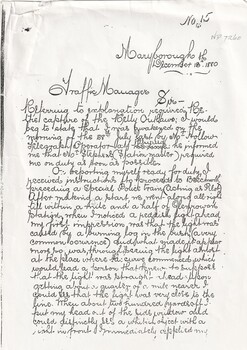 No. 15
Maryborough
December 13th 1880
Traffic Manager
Sir
Referring to explanation required re
the capture of the Kelly Outlaws, I would
beg to state that I was awakened on the
morning of the 28th July last by Mr
Telegraph Operator he informed
me that Mr Stephens (Stationmaster) required
me on duty as soon as possible.
On reporting myself ready for duty, I
received instructions to proceed to Beechworth
preceding a Special Police Train (acting as Pilot)
After making a start we went along all right
till within a mile and a half of Glenrowan
Station, when I noticed a reddish light ahead
my first impression was that the light was
caused by a burning log in the bush (a very
common occurrence)
more so, was through seeing the light ahead
at the place where the curve commenced which
would lead a person that knew to suppose
that the light was straight ahead. When
getting about a quarter of a mile nearer I
could see that the light was very close to the
line. When about two hundred yards off I
put my head out of the side window and
could distinctly see a white object with a
red in front I immediately applied my